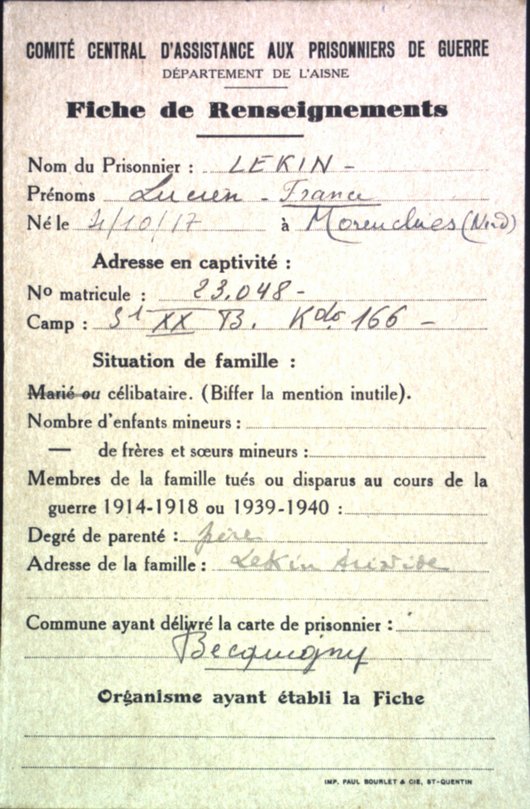 COMITÉ CENTRAL D'ASSISTANCE AUX PRISONNIERS DE GUERRE
DÉPARTEMENT DE L'AISNE
Fiche de Renseignements
Nom du Prisonnier : LEKIN -
Prénoms Lucien - France
Né le 4/10/17 à (Nord)
Adresse en captivité :
No matricule : 23.048 -
Camp : St XX B. Kdo 166 -
Situation de famille :
Marié ou célibataire. (Biffer la mention inutile).
Nombre d'enfants mineurs :
— de frères et sœurs mineurs :
Membres de la famille tués ou disparus au cours de la
guerre 1914-1918 ou 1939-1940 :
Degré de parenté : père
Adresse de la famille : Lekin
Commune ayant délivré la carte de prisonnier :
Becquigny
Organisme ayant établi la Fiche
IMP. PAUL BOURLET & CIE, ST-QUENTIN